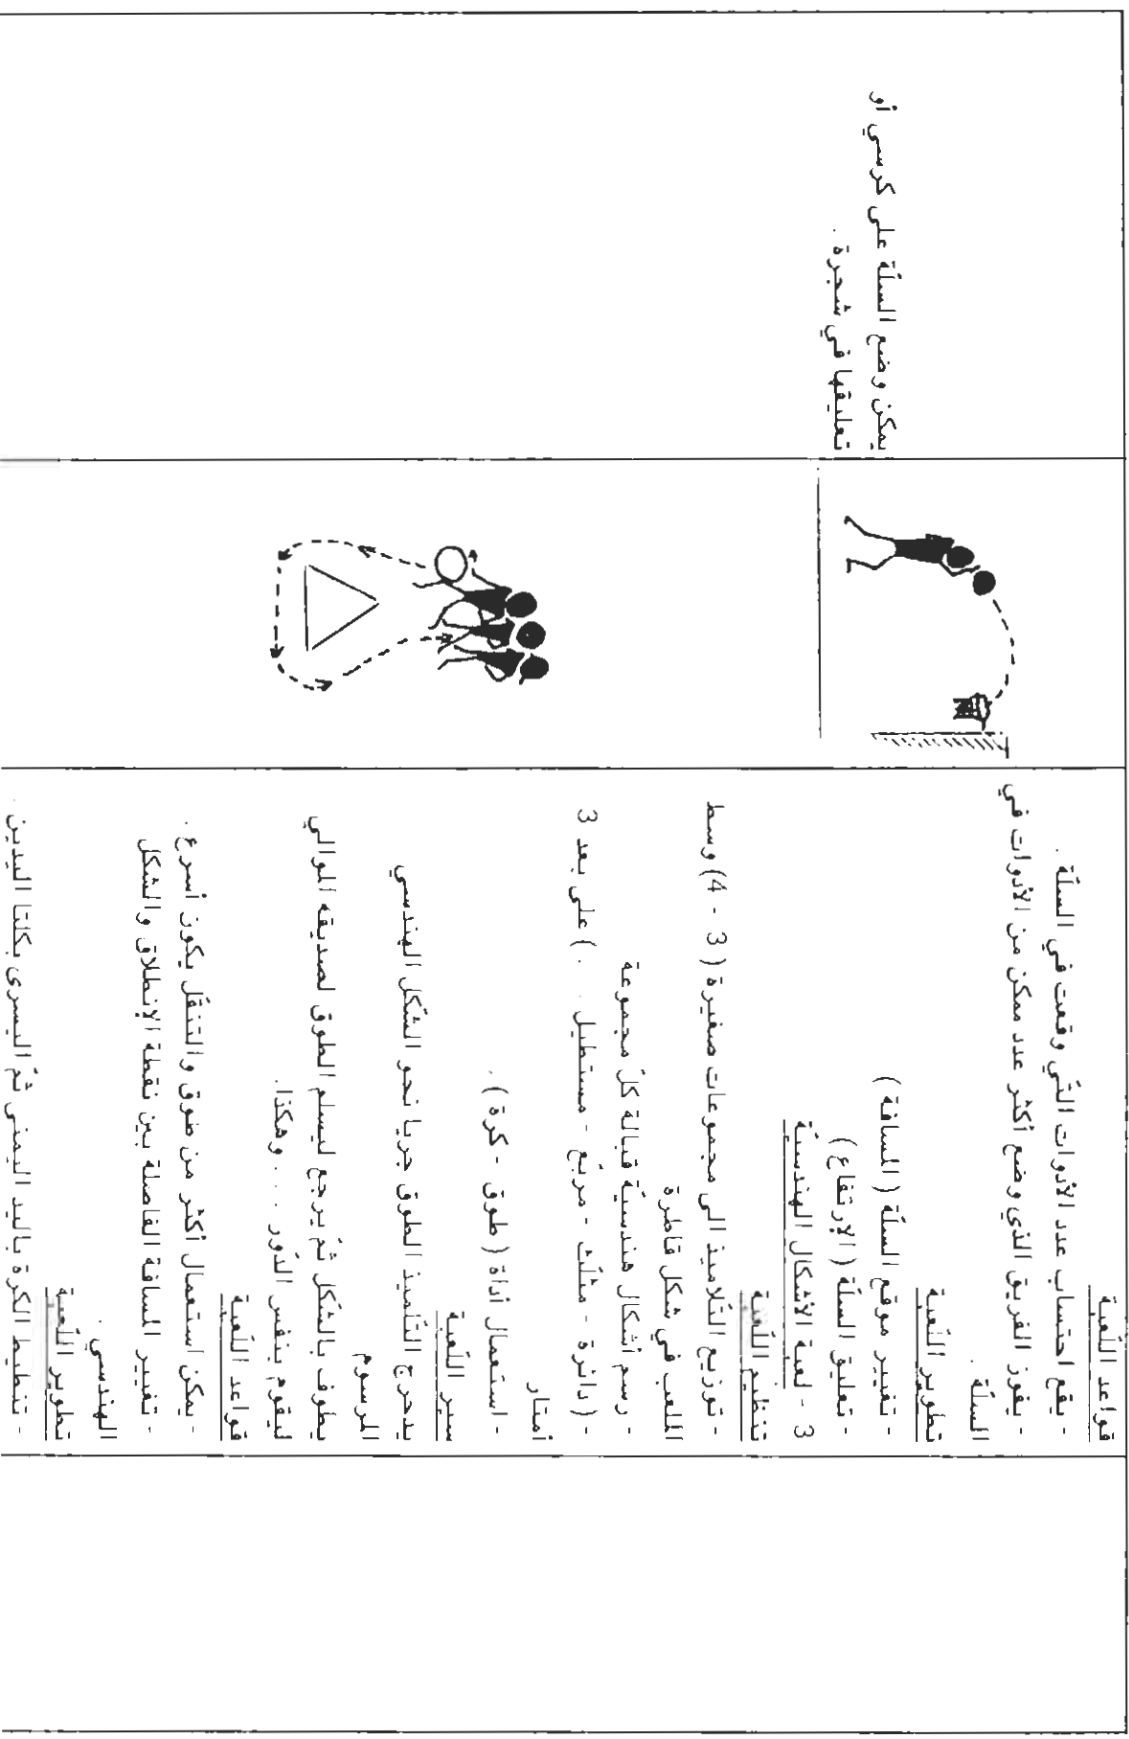 قواعد اللّعبة
- يقع احتساب عدد الأدوات التّي وقعت في السلّة .
- يفوز الفريق الذي وضع أكثر عدد ممكن من الأدوات في
السلّة .
تطوير اللّعبة
- تغيير موقع السلّة ( المسافة )
- تعليق السلّة ( الإرتفاع )
3 - لعبة الأشكال الهندسيّة
تنظيم اللّعبة
- توزيع التّلاميذ الى مجموعات صغيرة ( 3 - 4) وسط
الملعب في شكل قاطرة
- رسم أشكال هندسيّة قبالة كلّ مجموعة
- ( دائرة - مثلّث - مربّع - مستطيل . . ) على بعد 3
أمتار
- استعمال أداة ( طوق - كرة ) .
سير اللّعبة
يدحرج التّلميذ الطوق جريا نحو الشّكل الهندسي
المرسوم
يطوف بالشّكل ثمّ يرجع ليسلم الطوق لصديقه الموالي
ليقوم بنفس الدّور . . . وهكذا.
قواعد اللّعبة
- يمكن استعمال أكثر من طوق والتنقّل يكون أسرع .
- تغيير المسافة الفاصلة بين نقطة الإنطلاق والشّكل
الهندسي .
تطوير اللّعبة
- تنطيط الكرة باليد اليمنى ثمّ اليسرى بكلتا اليدين .
يمكن وضع السلّة على كرسي أو
تعليقها في شجرة .